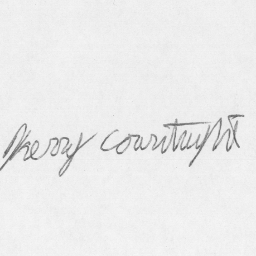 Kerry Courtright